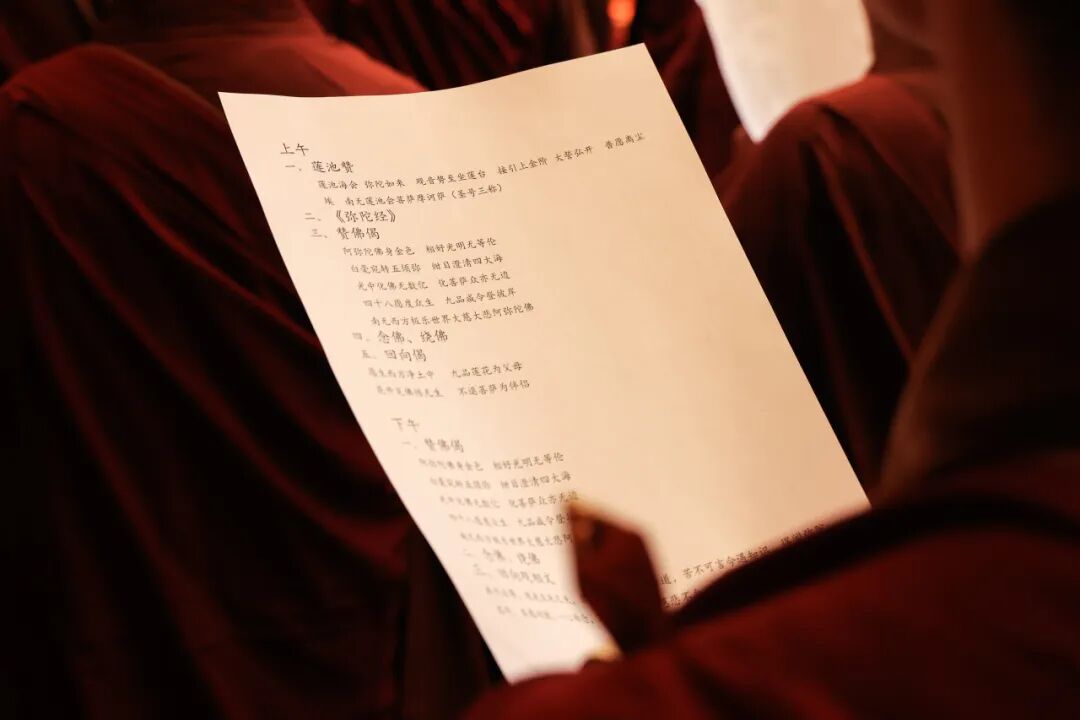 上午
一、莲池赞
莲池海会 弥陀如来 观音势至坐莲台 接引上金阶 大誓弘开 普愿离尘
埃 南无莲池会菩萨摩诃萨（圣号三称）
二、《弥陀经》
三、赞佛偈
阿弥陀佛身金色 相好光明无等伦
白毫宛转五须弥 绀目澄清四大海
光中化佛无数亿 化菩萨众亦无边
四十八愿度众生 九品咸令登彼岸
南无西方极乐世界大慈大悲阿弥陀佛
四、念佛、绕佛
五、回向偈
愿生西方净土中 九品莲花为父母
花开见佛悟无生 不退菩萨为伴侣
下午
一、赞佛偈
阿弥陀佛身金色 相好光明无等伦
白毫宛转五须弥 绀目澄清四大海
光中化佛无数亿 化菩萨众亦无边
四十八愿度众生 九品咸令登
南无西方极乐世界大慈大悲阿
二、念佛、绕佛
三、回向发愿文
道，苦不可言今遇知识